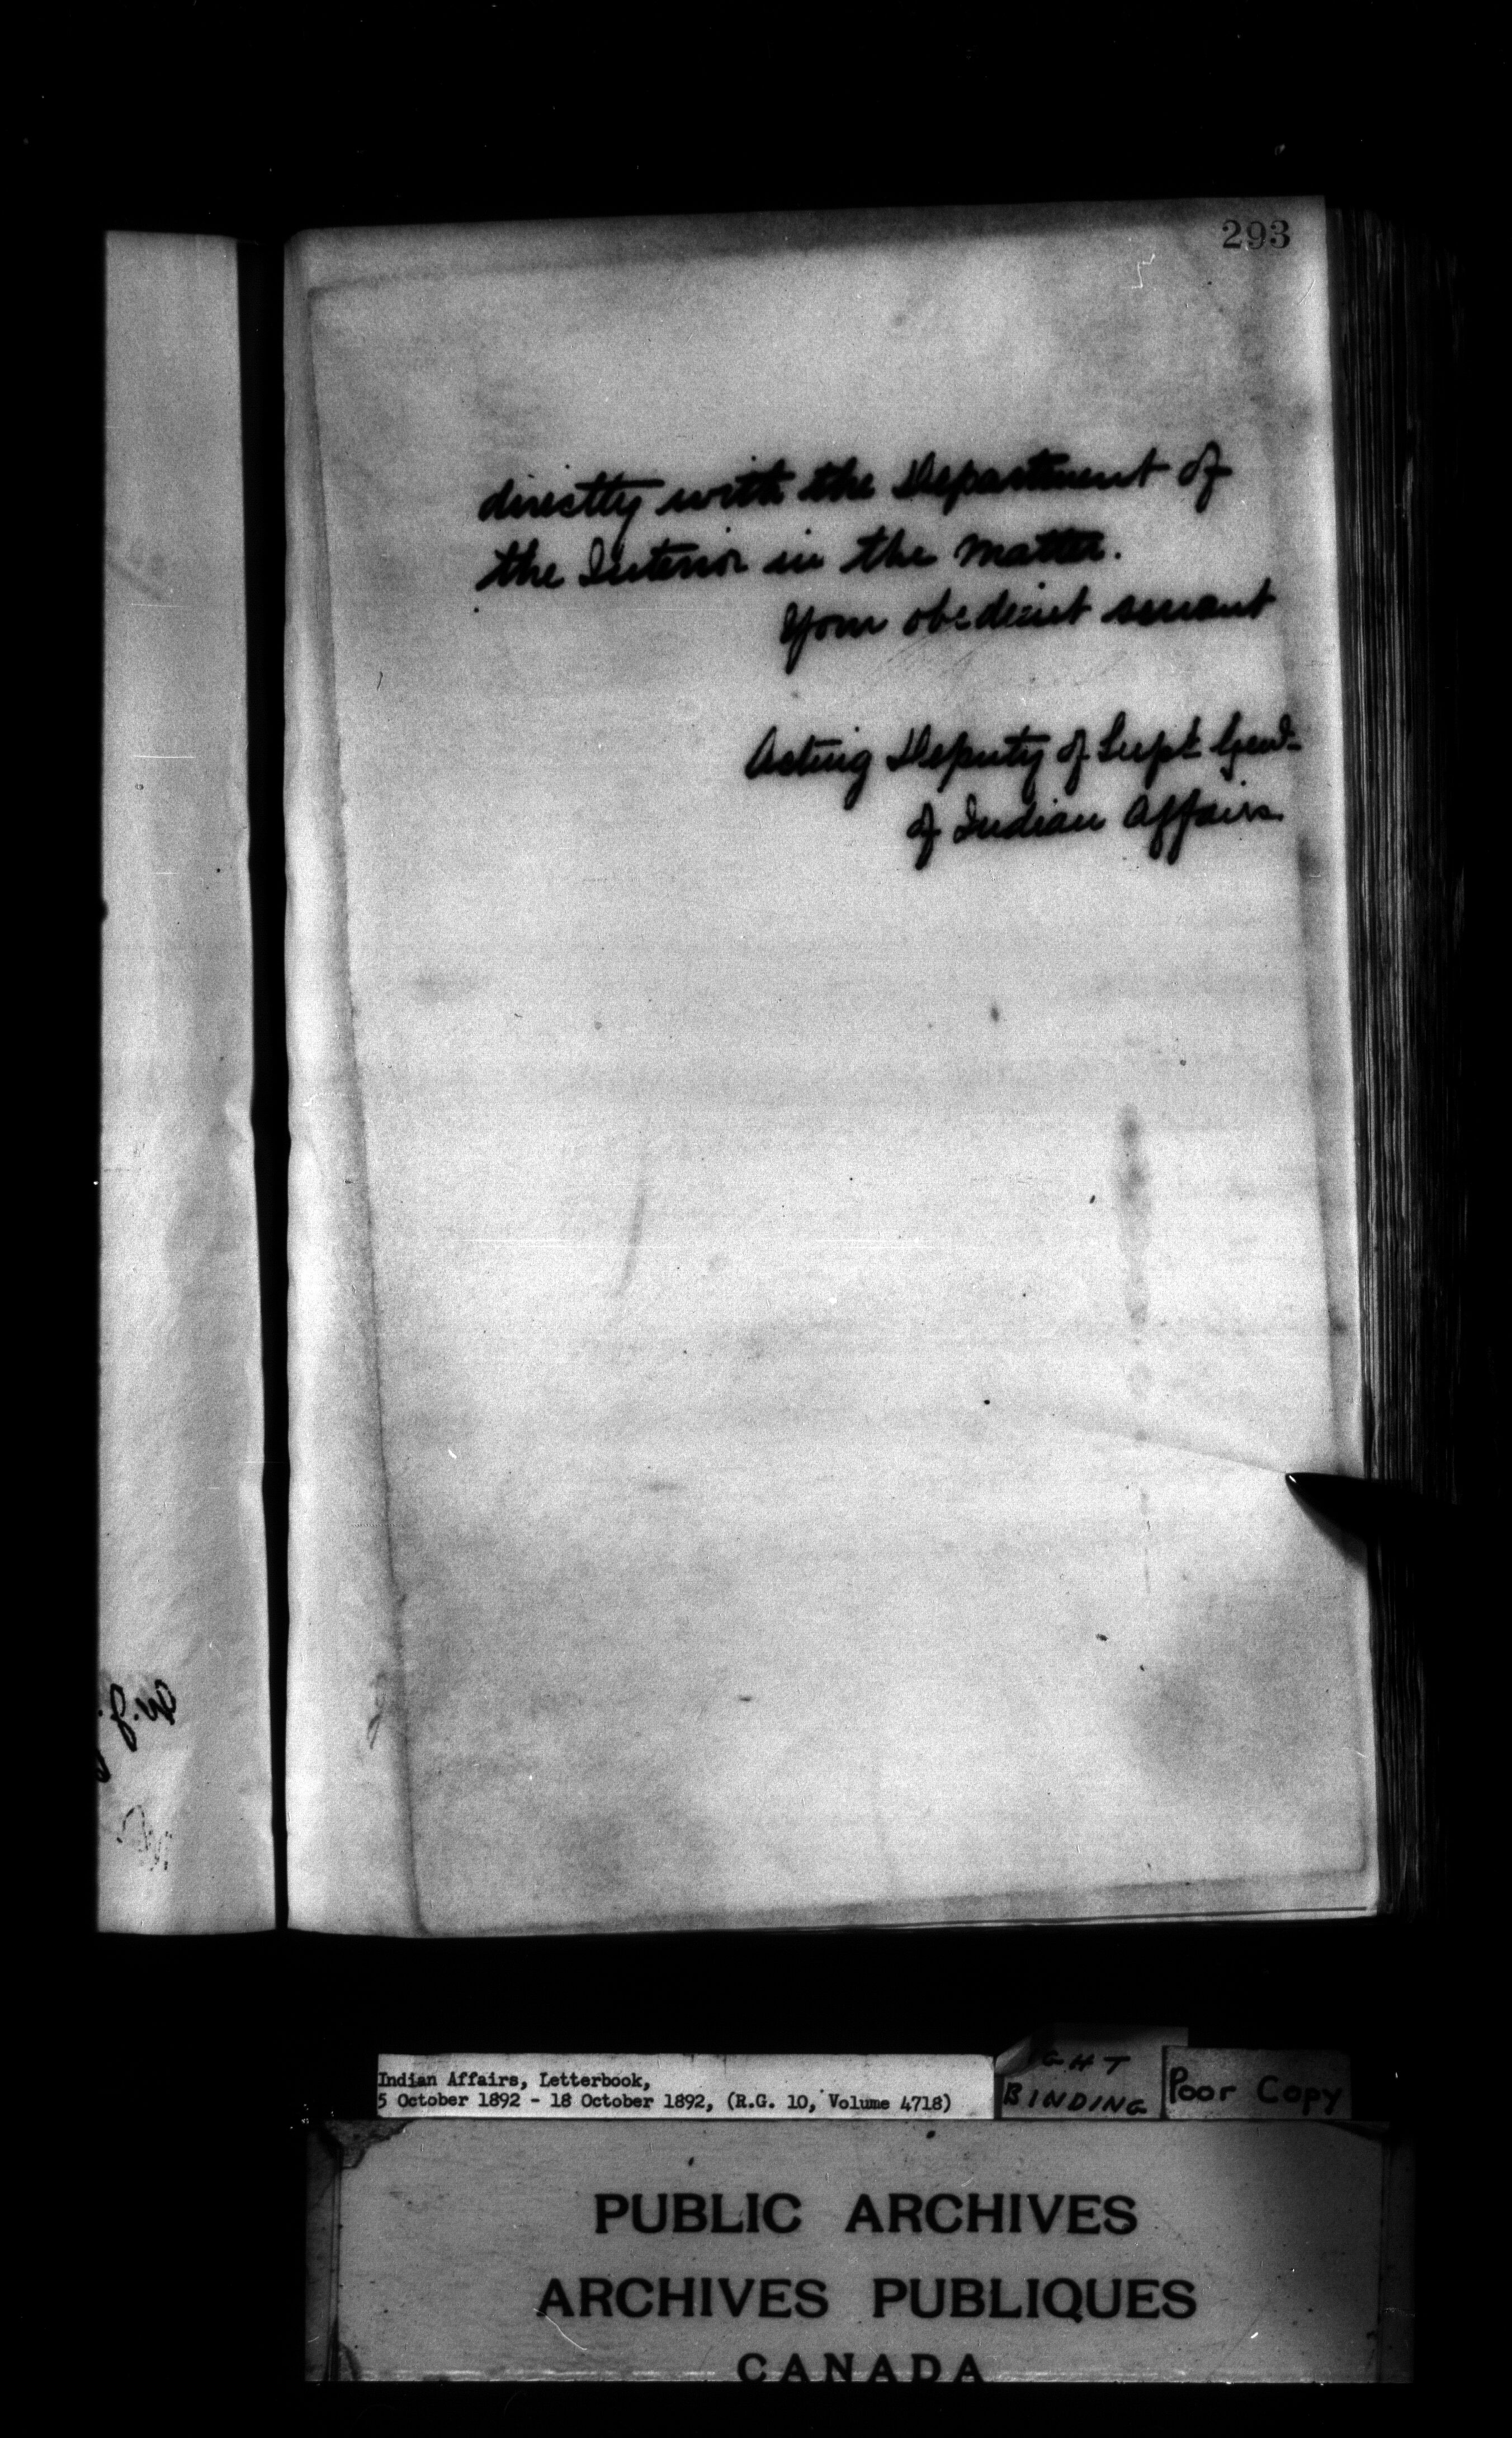 293
directly with the Department of
the Interior in the matter.
Your obedient servant
Acting Deputy of Supt Genl
of Indian Affairs.
Indian Affairs, Letterbook,
5 October 1892 - 18 October 1892, (R.G. 10, Volume 4718)
GHT
BINDING
Poor Copy
PUBLIC ARCHIVES
ARCHIVES PUBLIQUES
CANADA